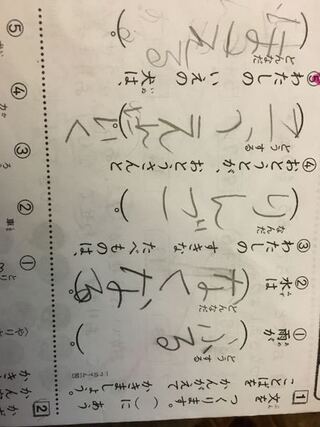 1 文を つくります。( )に あう
ことばを かんがえて かきましょう。
① 雨が (ふる)。
どうする
② 水は (なくなる)。
どんなだ
③ わたしの すきな たべものは、
(りんご)。
なんだ
④ おとうとが、おとうさんと
(こうえんにいく)。
どうする
⑤ わたしの いえの 犬は、
どんなだ
2
①
②
③
④
⑤